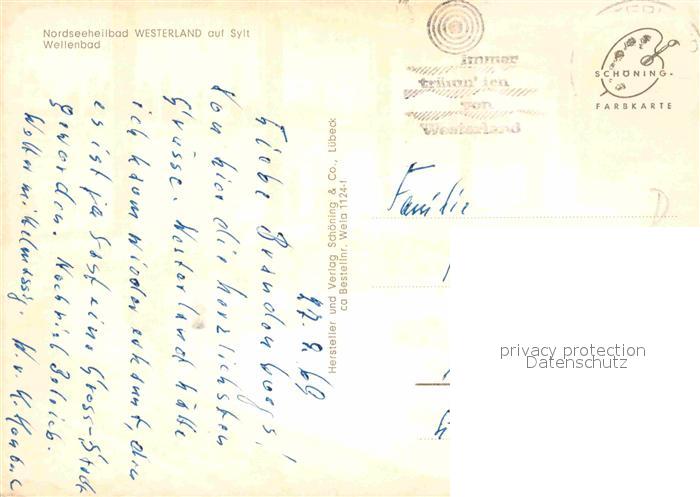 Nordseeheilbad WESTERLAND auf Sylt
Wellenbad
immer
träum' ich
von
Westerland
SCHÖNING-
FARBKARTE
Hersteller und Verlag Schöning & Co., Lübeck
ca Bestellnr. Wela 1124-f
27.8.69
Liebe Brandenburgs!
Von hier die herzlichsten
Grüsse. Westerland hätte
ich kaum wieder erkannt, den
es ist ja fast eine Gross-Stadt
geworden. Noch viel
Familie
D
privacy protection
Datenschutz